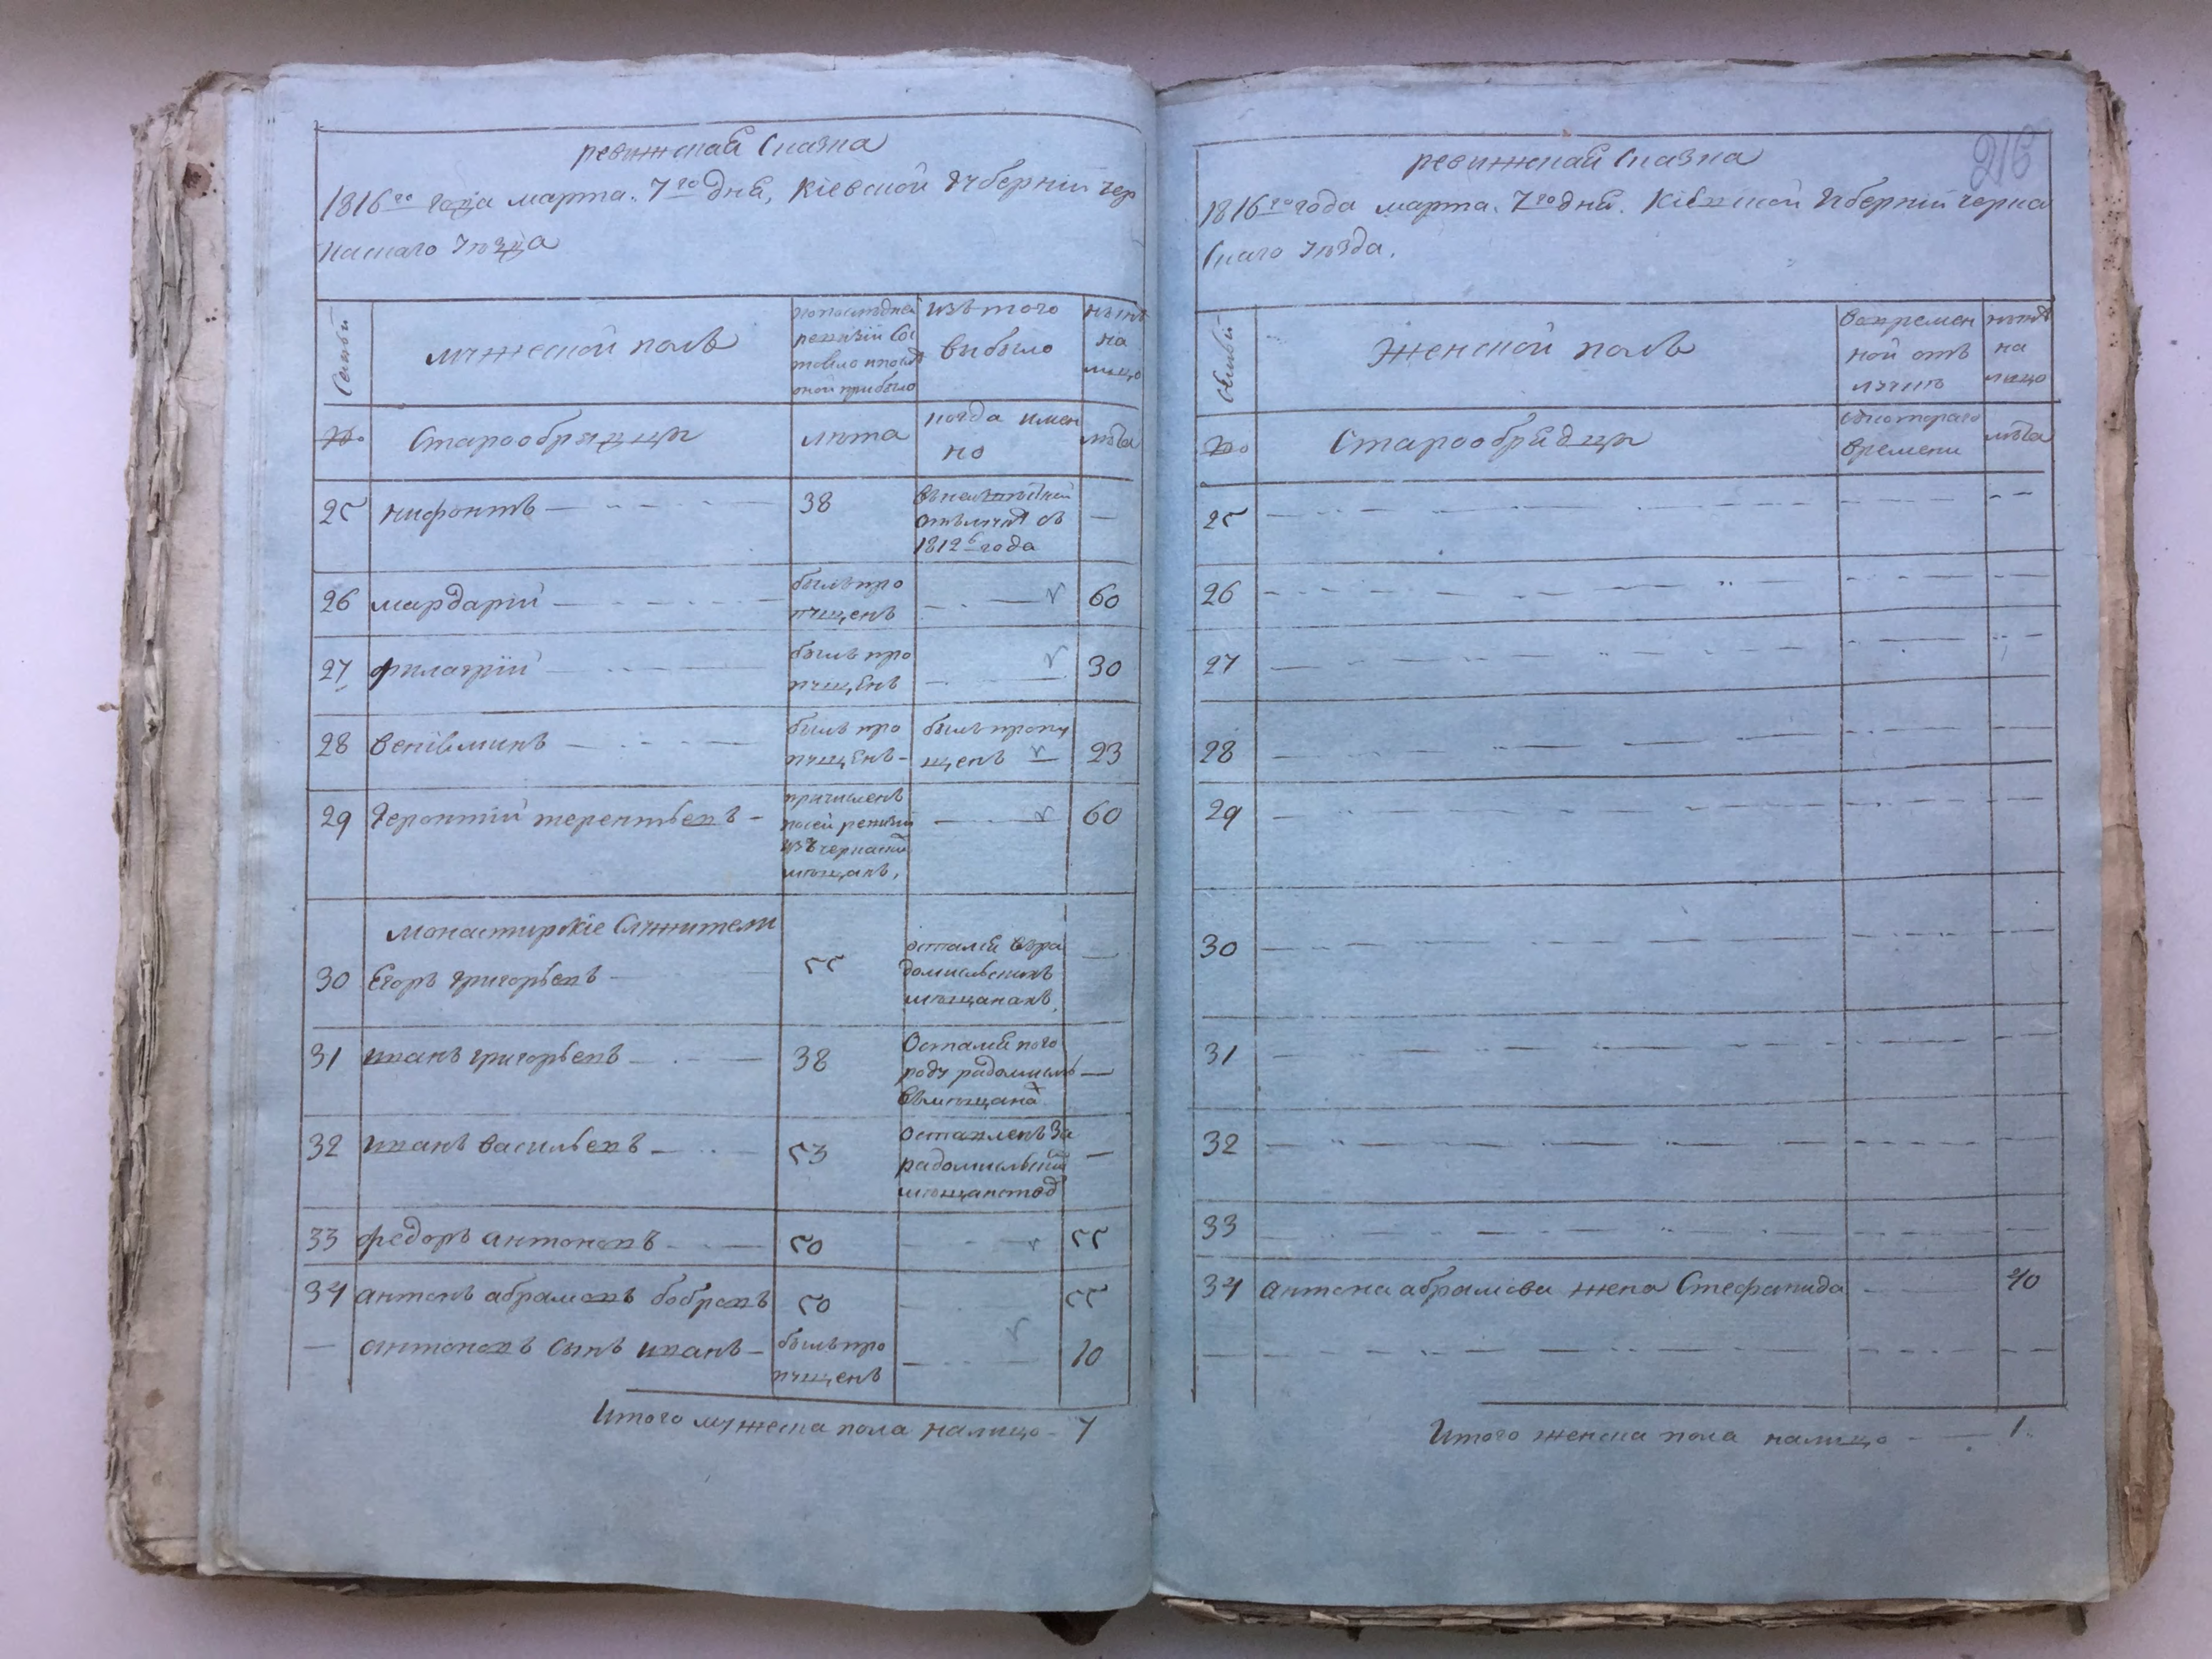 ревижская Сказка
1816го года марта. 7го дня, Кіевской Губерніи Чер
каскаго уѣзда
Семьи
мужеской полъ
по последней
ревизіи сос
тояло и после
оной прибыло
изъ того
выбыло
нынѣ
на
лицо
№
Старообрядцы
лѣта
когда имен
но
лѣта
25 нифонтъ 38
въ неизвѣстной
отълучкѣ съ
1812го года
26 мардарій
былъ про
пущенъ
60
27 филагрій
былъ про
пущенъ
30
28 веніяминъ
былъ про
пущенъ
былъ пропу
щенъ
23
29 Геронтій терентьевъ
причисленъ
посей ревизіи
изъ черкаски
мѣщанъ,
60
монастирскіе Служители
30 Егоръ григорьевъ 55
остался въ ра
домисльскихъ
мѣщанахъ,
31 иванъ григорьевъ 38
Остался по го
роду радомислю
въ мѣщанах
32 иванъ васильевъ 53
Оставленъ за
радомисльскимъ
мѣщанством
33 федоръ антоновъ 50 55
34 антонъ абрамовъ бобровъ 50 55
антоновъ сынъ иванъ
былъ про
пущенъ
10
Итого мужеска пола налицо 7
216
ревижская Сказка
1816го года марта. 7го дня. Кіевской Губерніи черка
скаго уѣзда.
Семьи
Женской полъ
во времен
ной отъ
лучкѣ
нынѣ
на
лицо
№
Старообрядцы
съ котораго
времени
лѣта
25
26
27
28
29
30
31
32
33
34 антона абрамова жена Стефанида 40
Итого женска пола налицо 1.